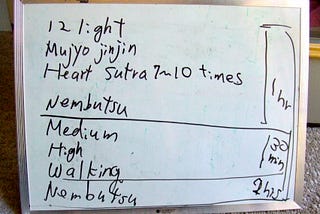 12 light
Mujyo jinjin
Heart sutra 7~10 times
Nembutsu
1 hr
Medium
High
Walking
30 min
Nembutsu